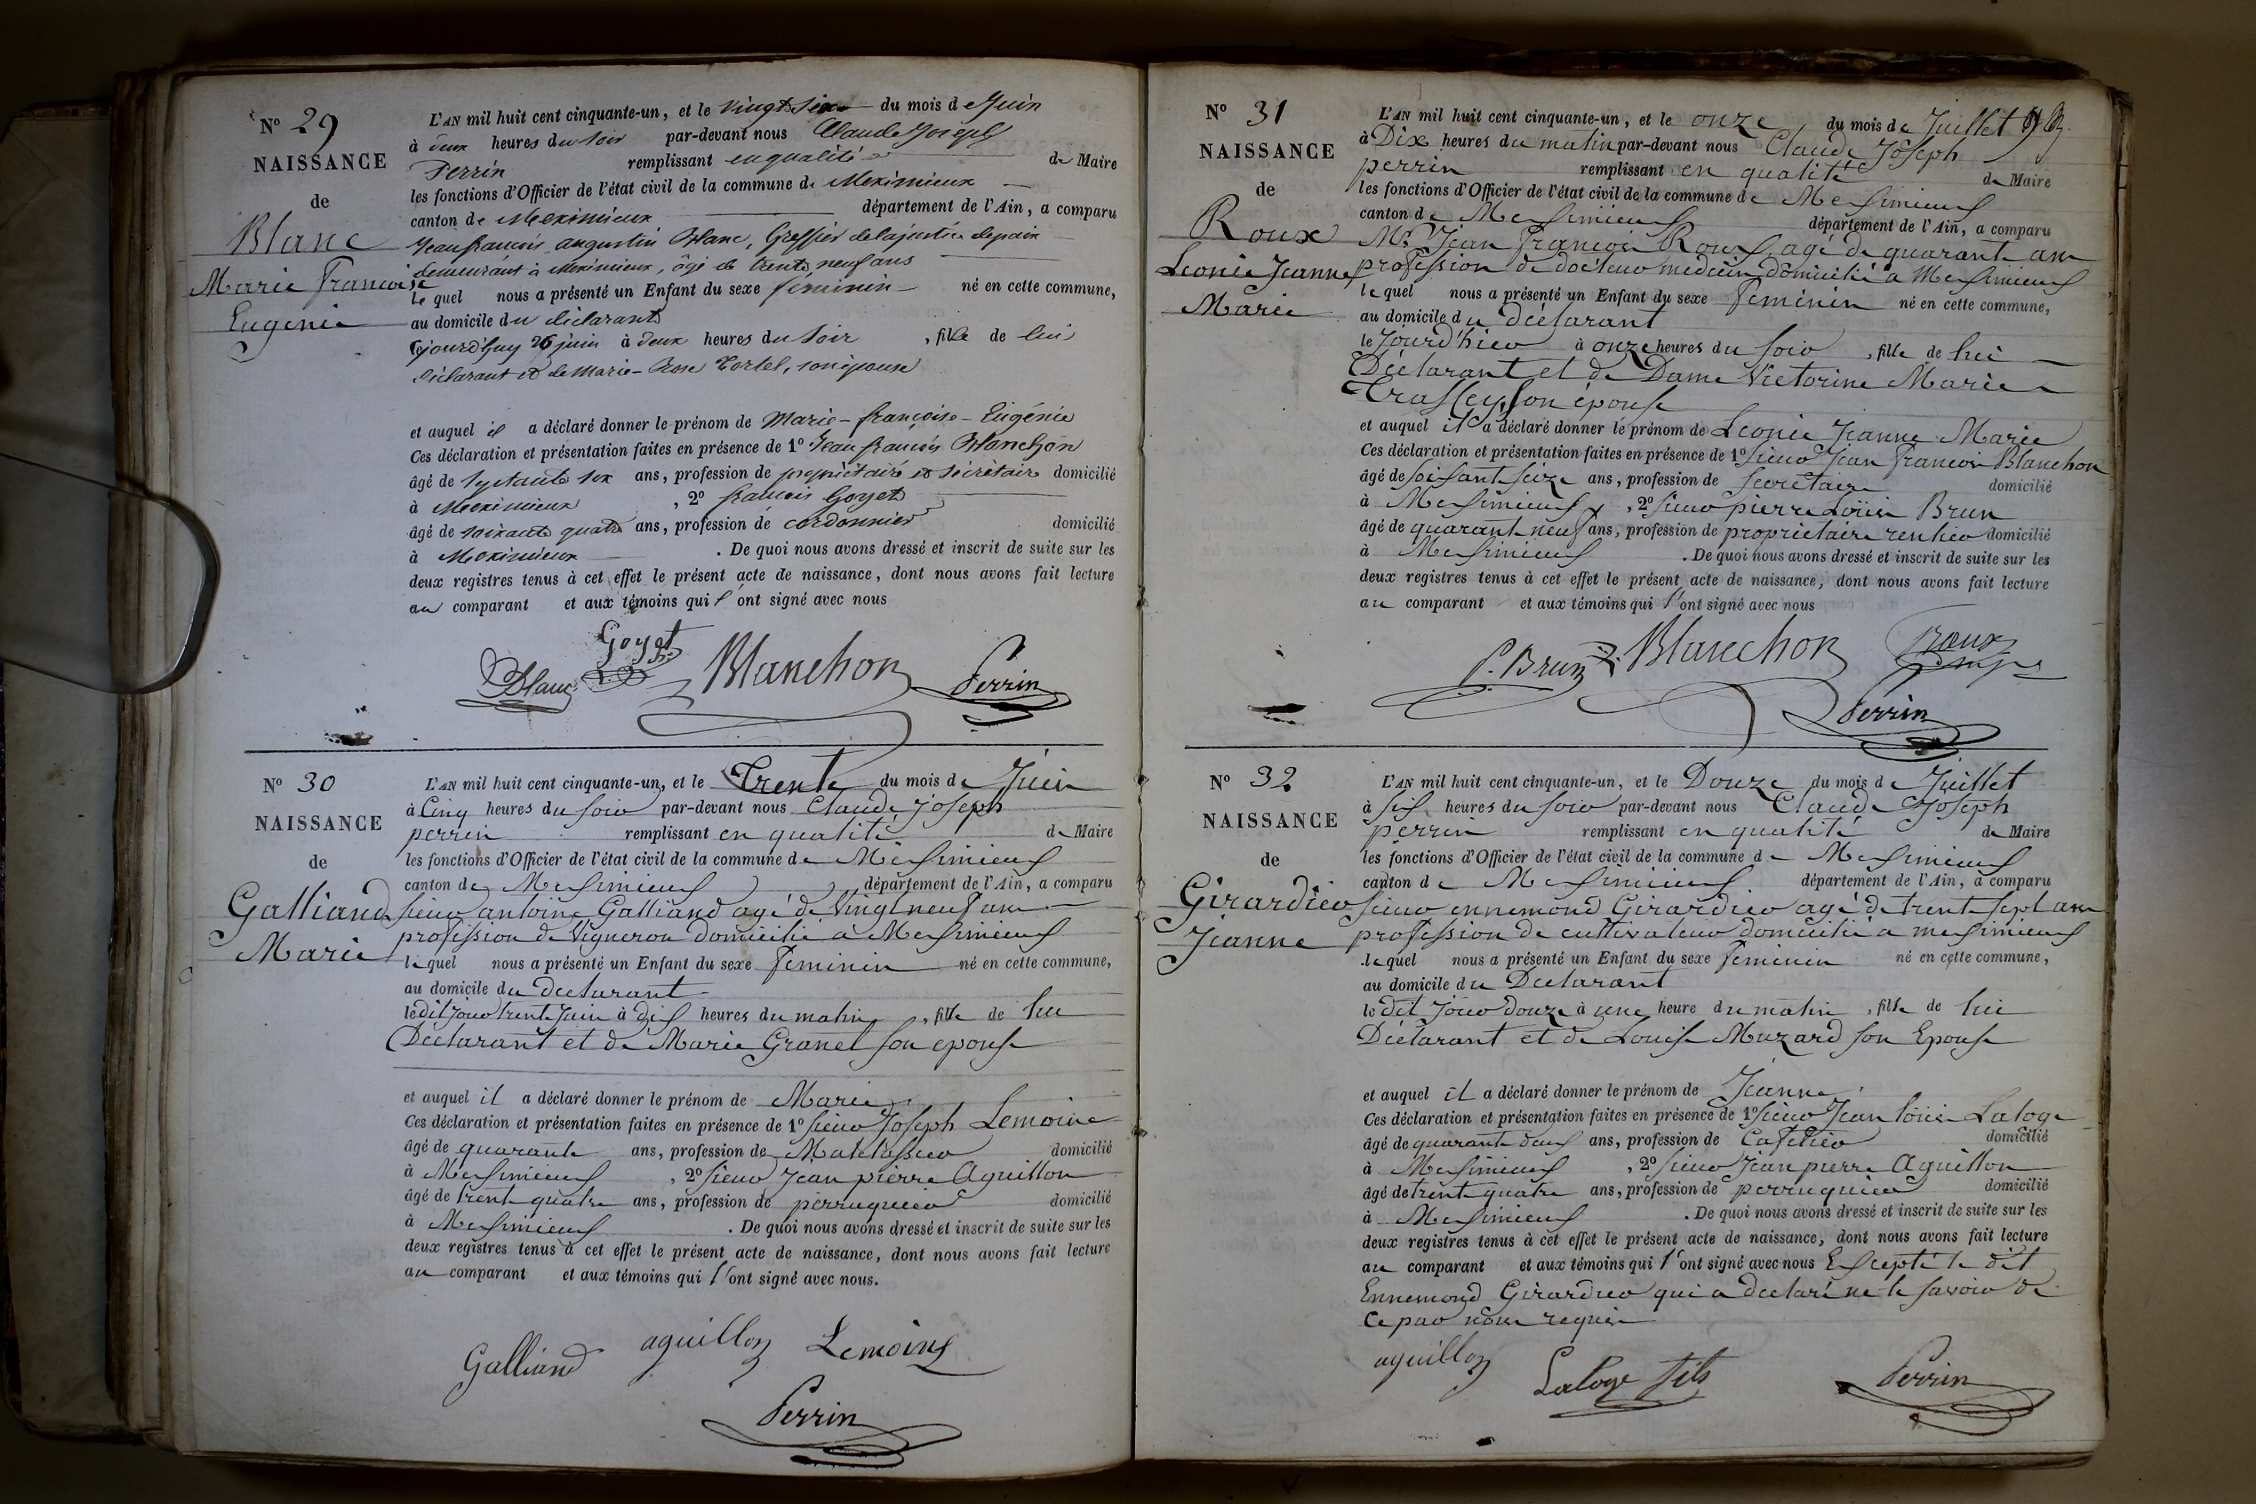 N° 29
NAISSANCE
de
Blanc
Marie Francoise
Eugenie
L'AN mil huit cent cinquante-un, et le vingt six du mois de Juin
à deux heures du soir par-devant nous Claude Joseph
Perrin remplissant en qualité de Maire
les fonctions d'Officier de l'état civil de la commune de Meximieux
canton de Meximieux département de l'Ain, a comparu
Jean francois augustin Blanc, Greffier de la justice de paix
demeurant à Meximieux, âgé de trente neuf ans
le quel nous a présenté un Enfant du sexe féminin né en cette commune,
au domicile du déclarant
cejourd'huy 26 juin à deux heures du soir, fille de lui
déclarant et de Marie-Rose Tortel, son épouse
et auquel il a déclaré donner le prénom de Marie-françoise-Eugénie
Ces déclaration et présentation faites en présence de 1° Jean françois Blanchon
âgé de septante six ans, profession de propriétaire et secrétaire domicilié
à Meximieux, 2° francois Goyet
âgé de soixante quatre ans, profession de cordonnier domicilié
à Meximieux. De quoi nous avons dressé et inscrit de suite sur les
deux registres tenus à cet effet le présent acte de naissance, dont nous avons fait lecture
au comparant et aux témoins qui l'ont signé avec nous
Goyet
Blanc Blanchon Perrin
N° 30
NAISSANCE
de
Galliand
Marie
L'AN mil huit cent cinquante-un, et le Trente du mois de Juin
à Cinq heures du soir par-devant nous Claude Joseph
perrin remplissant en qualité de Maire
les fonctions d'Officier de l'état civil de la commune de Messimieux
canton de Messimieux département de l'Ain, a comparu
sieur antoine Galliand agé de Vingt neuf ans
profession de Vigneron domicilié a Messimieux
le quel nous a présenté un Enfant du sexe Feminin né en cette commune,
au domicile du declarant
le dit jour trente Juin à dix heures du matin, fille de lui
Déclarant et de Marie Granet son epouse
et auquel il a déclaré donner le prénom de Marie
Ces déclaration et présentation faites en présence de 1° sieur Joseph Lemoine
âgé de quarante ans, profession de Matelassier domicilié
à Messimieux, 2° sieur Jean pierre Aguillon
âgé de trente quatre ans, profession de perruquier domicilié
à Messimieux. De quoi nous avons dressé et inscrit de suite sur les
deux registres tenus à cet effet le présent acte de naissance, dont nous avons fait lecture
au comparant et aux témoins qui l'ont signé avec nous.
Galliand aguillon Lemoine
Perrin
N° 31
NAISSANCE
de
Roux
Leonie Jeanne
Marie
L'AN mil huit cent cinquante-un, et le onze du mois de Juillet
à Dix heures du matin par-devant nous Claude Joseph
perrin remplissant en qualité de Maire
les fonctions d'Officier de l'état civil de la commune de Messimieux
canton de Messimieux département de l'Ain, a comparu
Mr Jean François Roux, agé de quarante ans
profession de docteur medecin domicilié a Messimieux
le quel nous a présenté un Enfant du sexe Feminin né en cette commune,
au domicile du déclarant
le Jourd'hier à onze heures du soir, fille de lui
Déclarant et de Dame Victorine Marie
son épouse
et auquel il a déclaré donner le prénom de Leonie Jeanne Marie
Ces déclaration et présentation faites en présence de 1° sieur Jean francois Blanchon
âgé de soisante seize ans, profession de secretaire domicilié
à Messimieux, 2° sieur pierre Louis Brun
âgé de quarante neuf ans, profession de proprietaire rentier domicilié
à Messimieux. De quoi nous avons dressé et inscrit de suite sur les
deux registres tenus à cet effet le présent acte de naissance, dont nous avons fait lecture
au comparant et aux témoins qui l'ont signé avec nous
P. Brun Blanchon Roux
Perrin
N° 32
NAISSANCE
de
Girardier
Jeanne
L'AN mil huit cent cinquante-un, et le Douze du mois de Juillet
à six heures du soir par-devant nous Claude Joseph
perrin remplissant en qualité de Maire
les fonctions d'Officier de l'état civil de la commune de Messimieux
canton de Messimieux département de l'Ain, a comparu
sieur ennemond Girardier agé de trente sept ans
profession de cultivateur domicilié a messimieux
lequel nous a présenté un Enfant du sexe Feminin né en cette commune,
au domicile du Declarant
le dit jour douze à une heure du matin, fille de lui
Déclarant et de Louise Mazard son Epouse
et auquel il a déclaré donner le prénom de Jeanne
Ces déclaration et présentation faites en présence de 1° sieur Jean louis Laloge
âgé de quarante deux ans, profession de Cafetier domicilié
à Messimieux, 2° sieur Jean pierre Aguillon
âgé de trente quatre ans, profession de perruquier domicilié
à Messimieux. De quoi nous avons dressé et inscrit de suite sur les
deux registres tenus à cet effet le présent acte de naissance, dont nous avons fait lecture
au comparant et aux témoins qui l'ont signé avec nous Escepté le dit
Ennemond Girardier qui a declaré ne le savoir de
ce par nous requis
aguillon Laloge fils Perrin